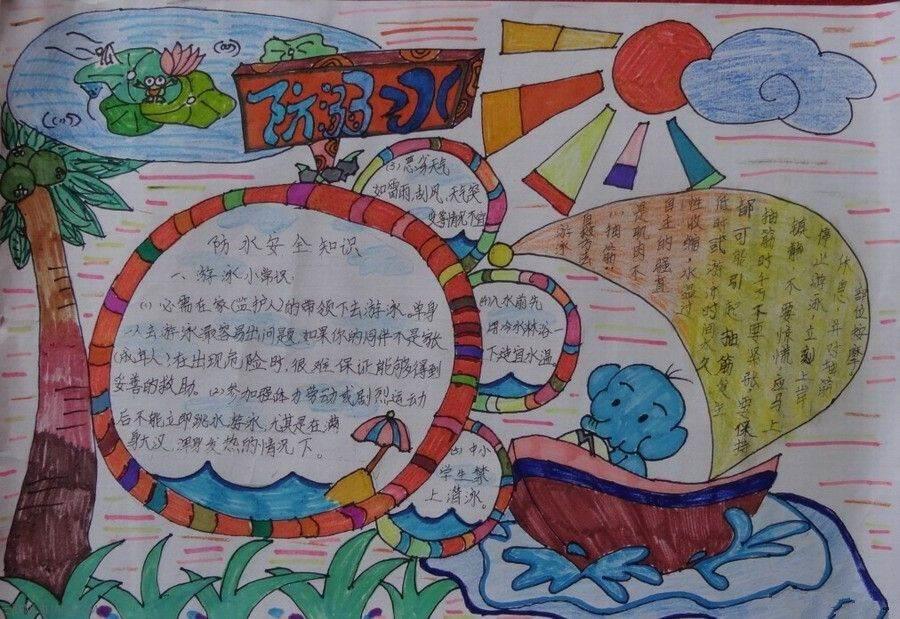 防溺水
防水安全知识
一、游泳小常识:
(1) 必需在家(监护人)的带领下去游泳。单身
一人去游泳最容易出问题,如果你的同伴不是家
(成年人)在出现危险时,很难保证能够得到
妥善的救助。(2)参加强体力劳动或剧烈运动
后不能立即跳水游泳,尤其是在满
身大汉,浑身发热的情况下。
(3)恶劣天气
如雷雨,刮风、天气突
变等情况不宜
游泳
(4)入水前先
用冷水林浴
下适宜水温。
中小
学生禁
上潜泳。
自救方法
(1)抽筋:
是肌肉不
自主的强直
性收缩,水温
低时或游泳时间太久
都可能引起抽筋发生
抽筋时千万不要紧张要保持
镇静,不要惊慌,应马上
停止游泳,立刻上岸
休息,并对抽筋
部位按摩